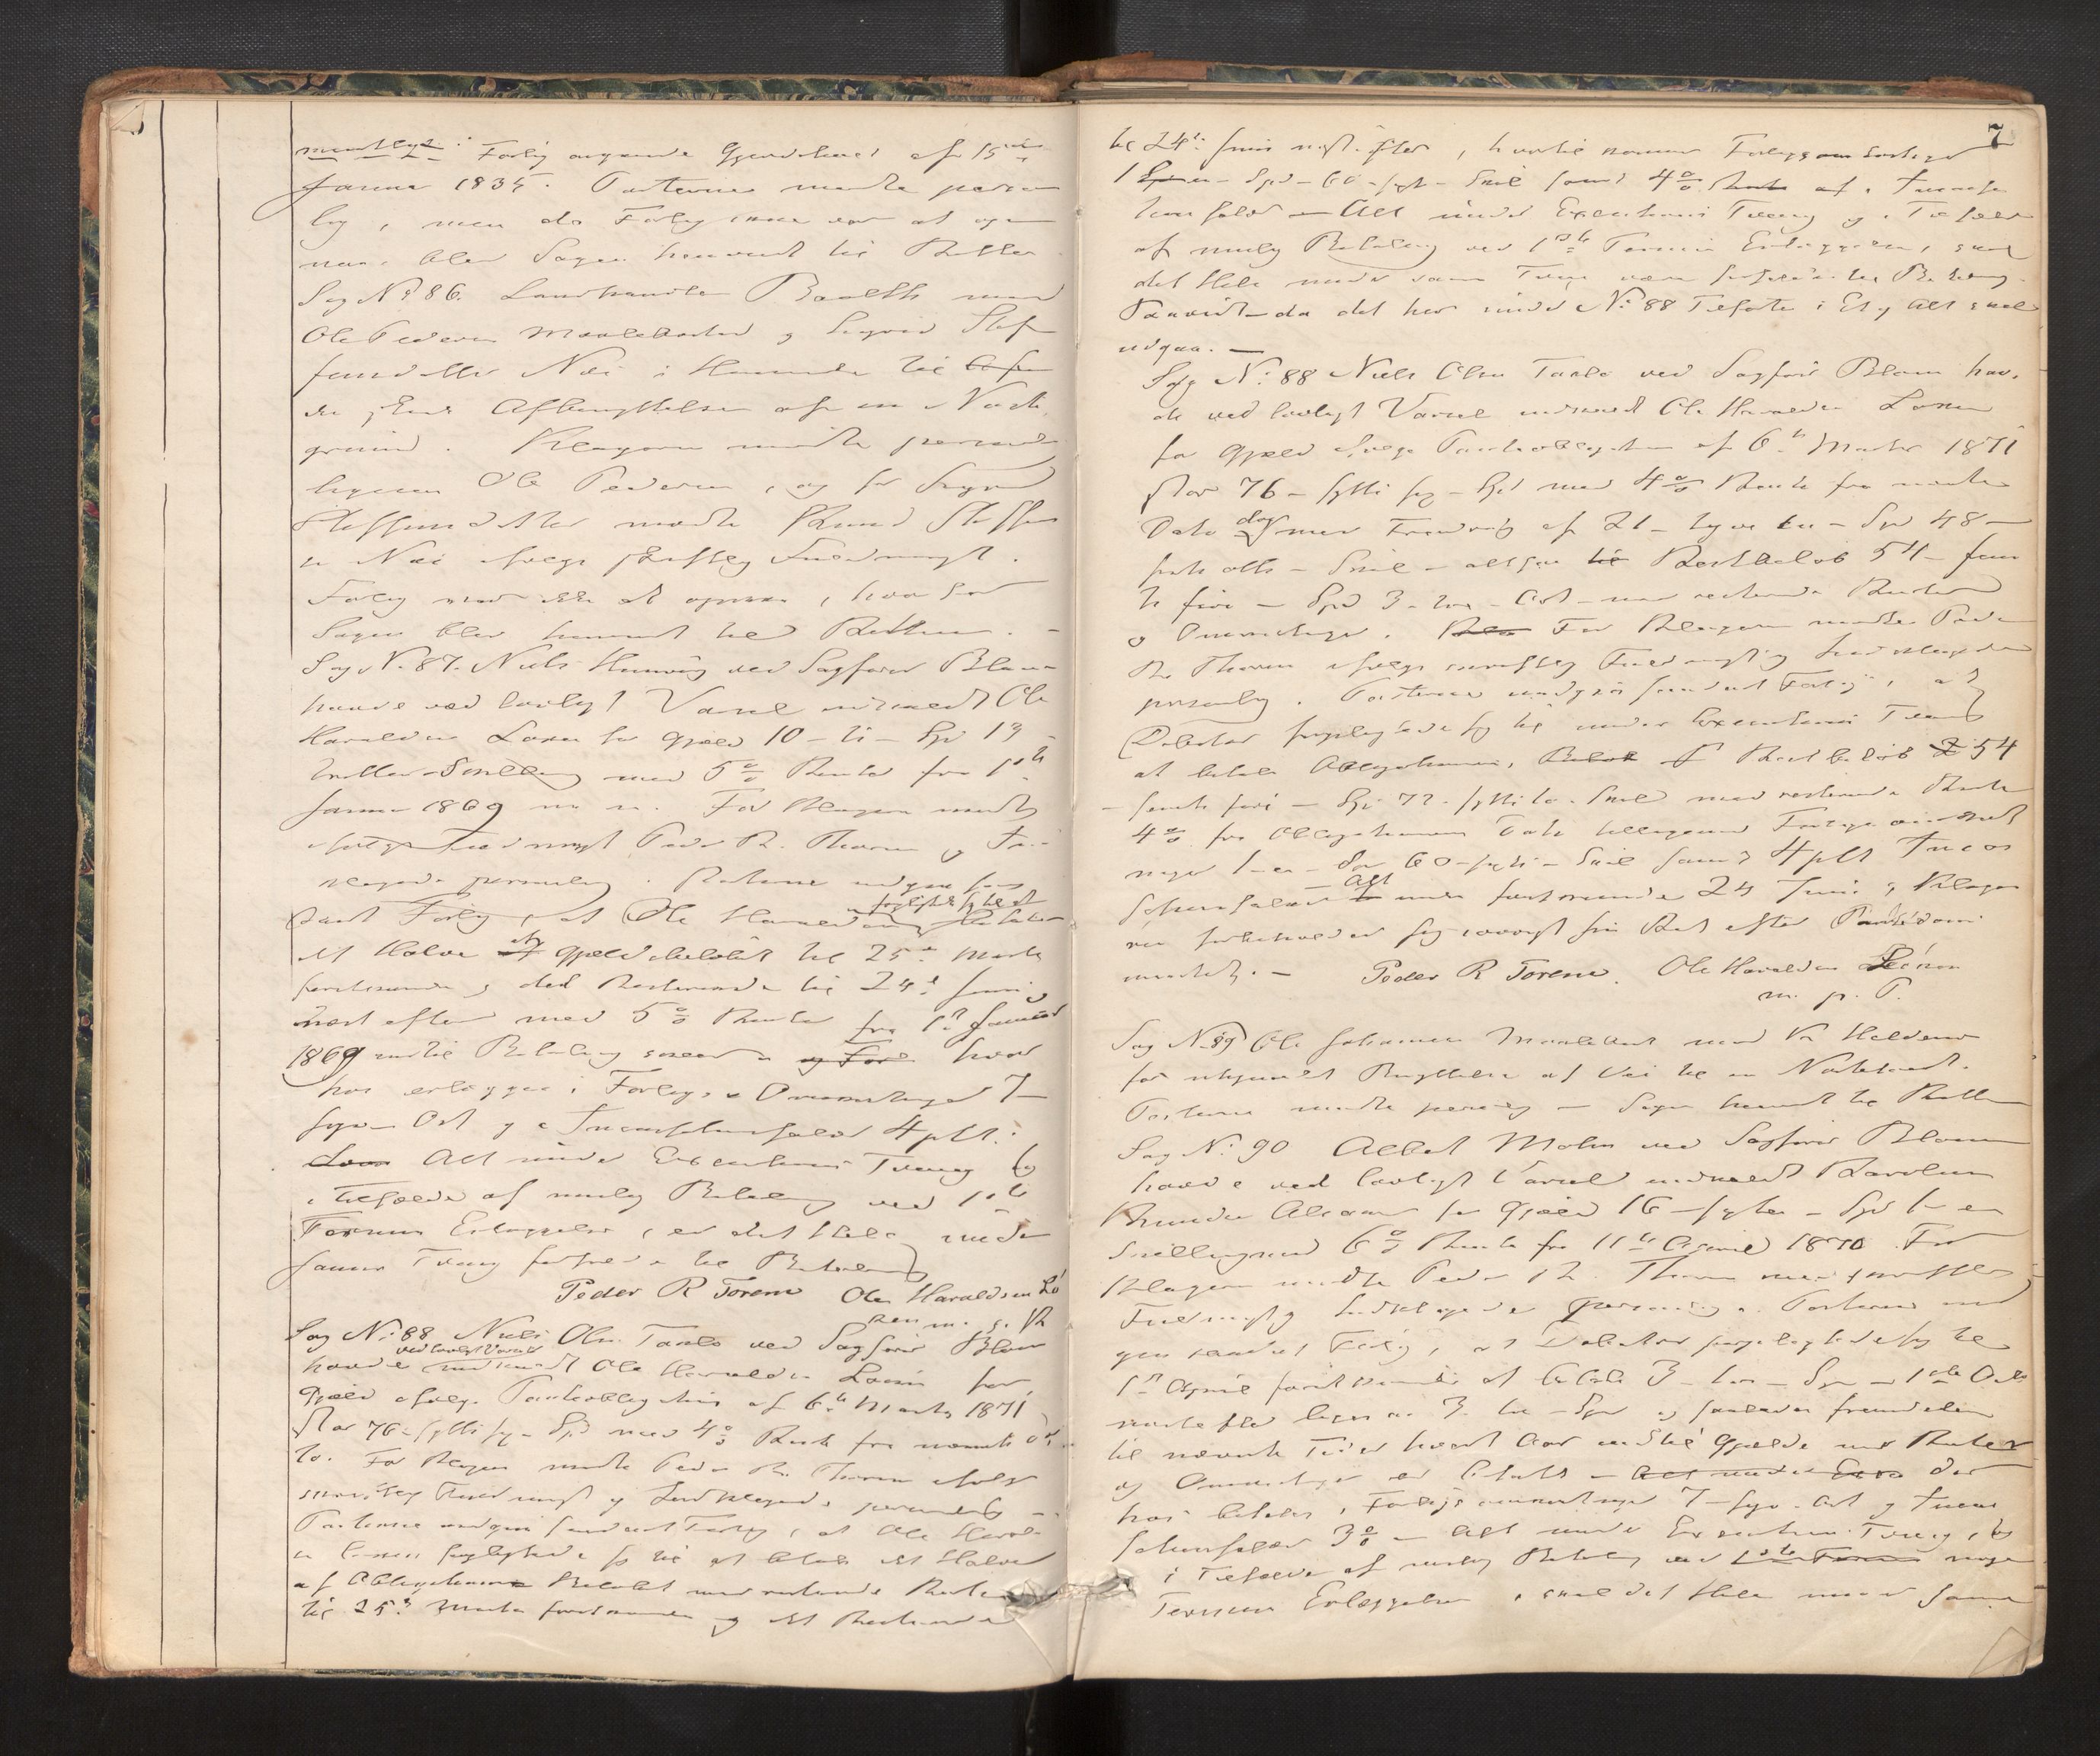 Forlig angaaende Gjerdehold af 15
Januar 1835. Parterne mødte person
lig, men da Forlig ikke var at opna
naa, blev Sagen henvist til Retten.
Sag No 86. Landhandler Baalth mod
Ole Pedersen Maalebostad og Sigrid Stef
fensdatter Næs i
Afbenyttelsen af en Nøst
grund. Klageren mødte personlig
ligesaa Ole Pedersen, og for Sigrid
Steffensdatter mødte Knud Steffen
sen Næs ifølge skriftlig Fuldmagt.
Forlig var ikke at opnaa, hvorfor
Sagen blev henvist til Retten. -
Sag No 87. Niels ved Sagfører Blom
havde ved lovligt Varsel indkaldt Ole
Haraldsen Lonen for Gjæld 10 - ti - Spd 13
tretten Skilling med 5 % Renter fra 1ste
Januar 1869 m. m. For Klageren mødte
ifølge Fuldmagt Peder R. Thorsen og Ind
klagede personlig. Parterne indgik saa
dant Forlig, at Ole Haraldsen forpligtede sig til at betale
det Halve af Gjældsbeløbet til 25de Marts
førstkommende og det Resterende til 24de Juni
næst efter med 5 % Renter fra 1ste Januar
1869 indtil Betaling skeer og For hvor
hos erlægges i Forligsomkostninger 7
syv Ort og i Incassationssalær 4 pCt.
Alt under Executions Tvang og
i Tilfælde af muelig Betaling ved 1ste
Termins Erlæggelse, er det Hele under
samme Tvang forfalden til Betaling
Peder R Torsen Ole Haraldsen Lo
nen m. p. P.
Sag No 88 Niels Olsen Taule ved Sagfører Blom
havde ved lovligt Varsel indkaldt Ole Haraldsen Lonen for
Gjæld ifølge Panteobligation af 6te Marts 1871
stor 76 - sytti sex - Spd med 4 % Rente fra nævnte Da
to. For Klageren mødte Peder R. Thorsen ifølge
skriftlig Fuldmagt og Indklagede personlig -
Parterne indgik saadant Forlig, at Ole Harald
sen Lonen forpligtede sig til at betale det Halve
af Obligationens Beløb med resterende Renter
til 25de Marts førstkommende og det Resterende
7
til 24de Juni næst efter, hvortil kommer Forligsomkostninger
1 Spd - 60 - syt - Skil samt 4 % af Incassa
tions salær - Alt under Executions Tvang og i Tilfælde
af muelig Betaling ved 1ste Termin Erlæggelse, skal
det Hele under samme Tvang være forfalden til Betaling.
da det her under No 88 Tilførte i Et og Alt skal
udgaa. -
Sag No 88 Niels Olsen Taule ved Sagfører Blom hav
de ved lovligt Varsel indkaldt Ole Haraldsen Lonen
for Gjæld ifølge Panteobligation af 6te Marts 1871
stor 76 - sytti sex - Spd med 4 % Rente fra nævnte
Dato dog med Fradrag af 21 - tyve en - Spd 48 -
forti otte - Skil - altsaa til Restbeløb 54 - fem
ti fire - Spd 3 - tre - Ort - med resterende Renter
og Omkostninger. For Klageren mødte Peder
R. Thorsen ifølge skriftlig Fuldmagt og Indklagede
personlig. Parterne indgik saadant Forlig, at
Debitor forpligtede sig til under Executions Tvang
at betale Obligationens Restbeløb 54
- femti fire - Spd 72 - sytti to - Skil med resterende Rente
4 % fra Obligationens Dato tilligemed Forligsomkost
ninger 1 - en - Spd 60 - syti - Skil samt 4 pCt Incas
sationssalær - Alt inden førstkommende 24 Juni og Klage
ren forbeholder sig iøvrigt sin Ret efter
- Peder R Torsen. Ole Haraldsen Lonen
m. p. P.
Sag No 89 Ole Johannesen mod
for Benyttelse af Vei til en Nøstetomt.
Parterne mødte personlig - Sagen henvist til Retten
Sag No 90 Albert Mohn ved Sagfører Blom
havde ved lovligt Varsel indkaldt Karolus
Knudsen for Gjæld 16 - sexten - Spd 1 - en
Skilling med 6 % Rente fra 11te April 1870. For
Klageren mødte Peder R. Thorsen med skriftlig
Fuldmagt og Indklagede personlig. Parterne ind
gik saadant Forlig, at Debitor forpligtede sig til
1ste April førstkommende at betale 3 - tre - Spd - 1ste Octb
næstefter ligesaa 3 - tre - Spd og saaledes fremdeles
til nævnte Tider hvert Aar indtil Gjælden med Renter
og Omkostninger er betalt - Alt under Exec der
hos betales i Forligsomkostninger 7 - syv - Ort og Incas
sationssalær 3 % - Alt under Executions Tvang, og
i Tilfælde af muelig Betaling ved 1ste Termin nogen
Termins Erlæggelse, skal det Hele under samme